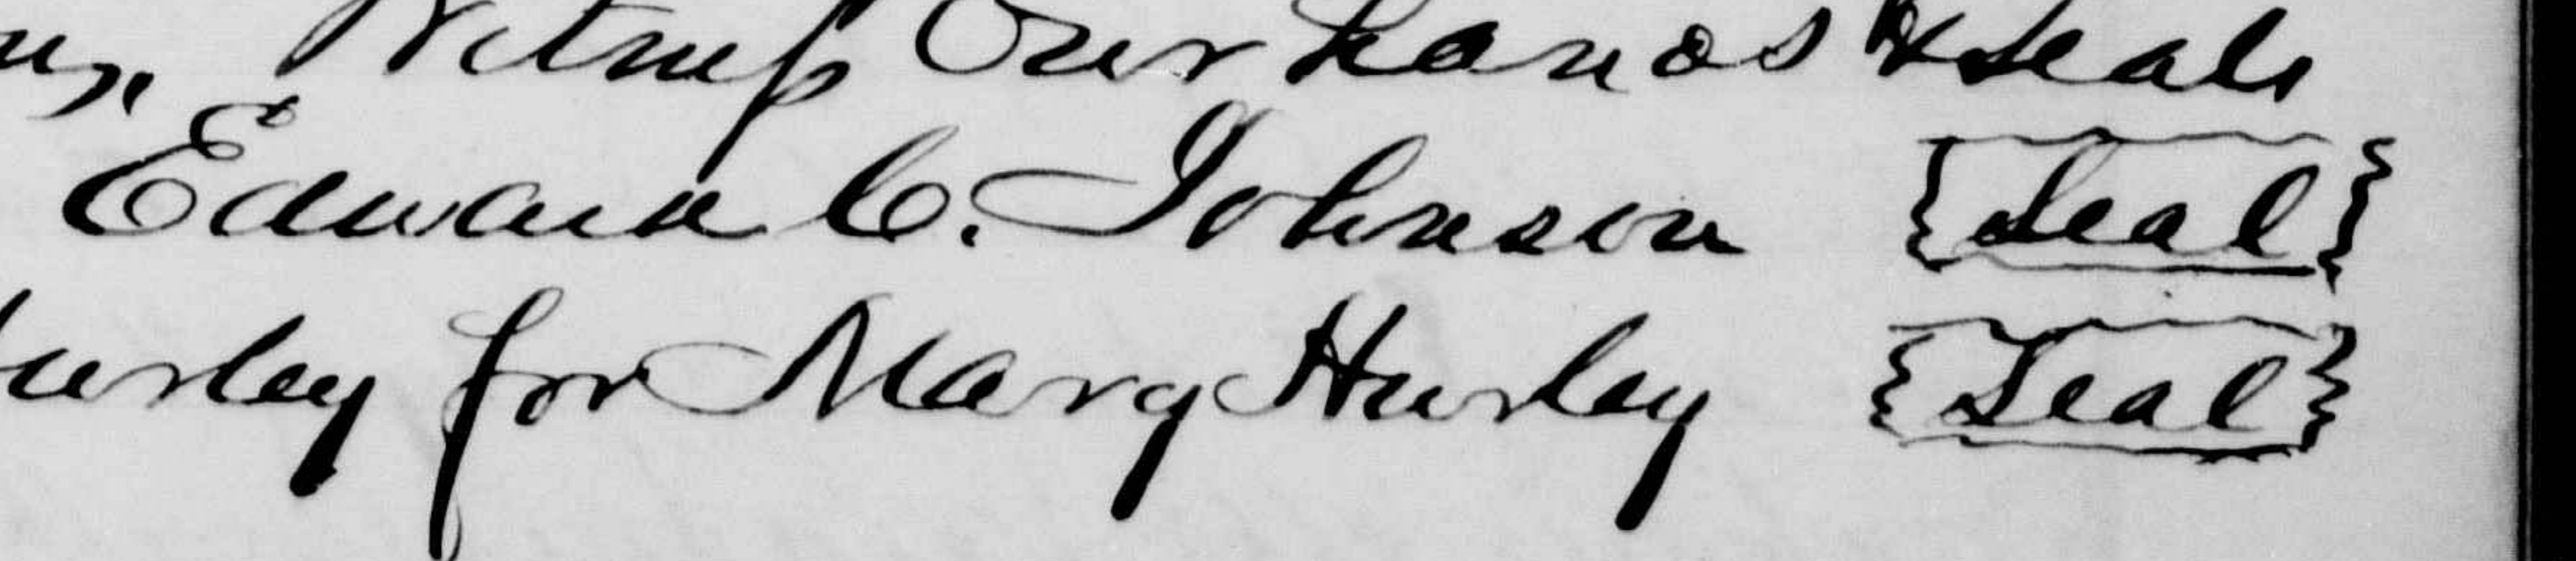 Witness Our hands & Seals
Edward C. Johnson {Seal}
urley for Mary Hurley {Seal}